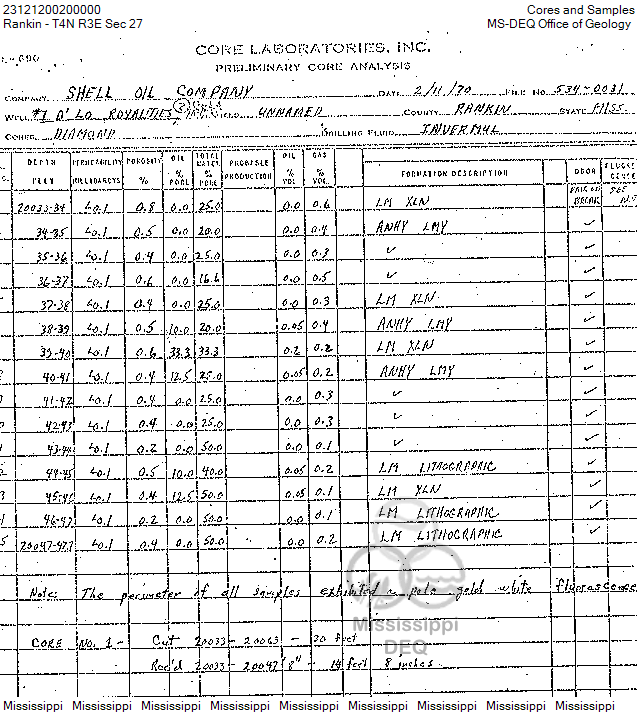 23121200200000 Cores and Samples
Rankin - T4N R3E Sec 27 MS-DEQ Office of Geology
CORE LABORATORIES, INC.
PRELIMINARY CORE ANALYSIS
COMPANY SHELL OIL COMPANY DATE 2/11/70 FILE NO. 534-0031
WELL #1 D'LO ROYALTIES FIELD UNNAMED COUNTY RANKIN STATE MISS.
CORES DIAMOND DRILLING FLUID INVERMUL
DEPTH FEET PERMEABILITY MILLIDARCYS POROSITY % OIL % PORE TOTAL WATER % PORE PROBABLE PRODUCTION OIL % VOL. GAS % VOL. FORMATION DESCRIPTION ODOR
20033-34 <0.1 0.8 0.0 25.0 0.0 0.6 LM XLN ✓
34-35 <0.1 0.5 0.0 20.0 0.0 0.4 ANHY LMY ✓
35-36 <0.1 0.4 0.0 25.0 0.0 0.3 ✓ ✓
36-37 <0.1 0.6 0.0 16.6 0.0 0.5 ✓ ✓
37-38 <0.1 0.4 0.0 25.0 0.0 0.3 LM XLN ✓
38-39 <0.1 0.5 10.0 20.0 0.05 0.4 ANHY LMY ✓
39-40 <0.1 0.6 33.3 33.3 0.2 0.2 LM XLN ✓
40-41 <0.1 0.4 12.5 25.0 0.05 0.2 ANHY LMY ✓
41-42 <0.1 0.4 0.0 25.0 0.0 0.3 ✓ ✓
42-43 <0.1 0.4 0.0 25.0 0.0 0.3 ✓ ✓
43-44 <0.1 0.2 0.0 50.0 0.0 0.1 ✓ ✓
44-45 <0.1 0.5 10.0 40.0 0.05 0.2 LM LITHOGRAPHIC ✓
45-46 <0.1 0.4 12.5 50.0 0.05 0.1 LM XLN ✓
46-47 <0.1 0.2 0.0 50.0 0.0 0.1 LM LITHOGRAPHIC ✓
20047-47.7 <0.1 0.4 0.0 50.0 0.0 0.2 LM LITHOGRAPHIC ✓
Note: The perimeter of all samples exhibited a pale gold white fluorescence
Mississippi
DEQ
CORE NO. 1 - Cut 20033 - 20063 - 30 feet
Rec'd 20033 - 20047' 8" - 14 feet 8 inches.
Mississippi Mississippi Mississippi Mississippi Mississippi Mississippi Mississippi Mississippi Mississippi